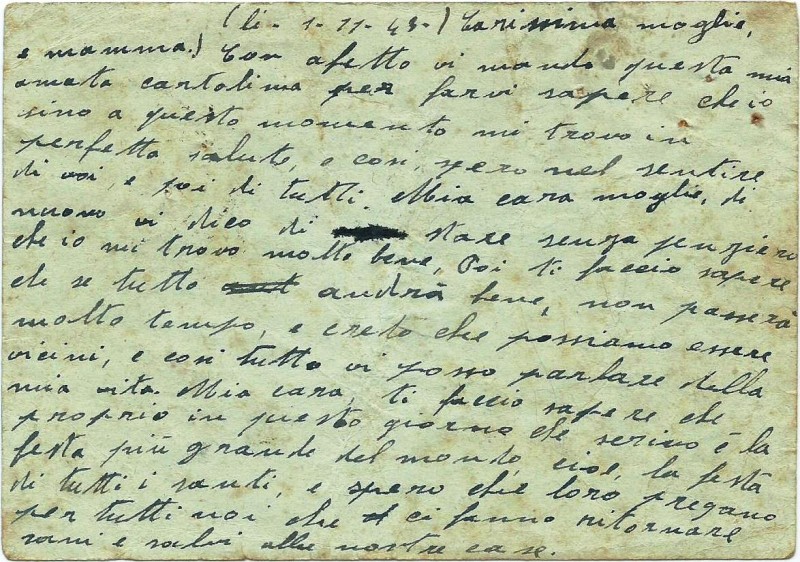 (li - 1 - 11 - 43 -) Carissima moglie,
e mamma.) Con afetto vi mando questa mia
amata cartolina per farvi sapere che io
sino a questo momento mi trovo in
perfetta salute, e così, spero nel sentire
di voi, e poi di tutti. Mia cara moglie, di
nuovo vi dico di stare senza penziero
che io mi trovo molto bene, Poi ti faccio sapere
che se tutto andrà bene, non passerà
molto tempo, e creto che possiamo essere
vicini, e così tutto vi posso parlare della
mia vita. Mia cara, ti faccio sapere che
proprio in questo giorno che scrivo è la
festa più grande del mondo, cioè, la festa
di tutti i santi, e spero che loro pregano
per tutti noi che ci fanno ritornare
sani e salvi alle nostre case.